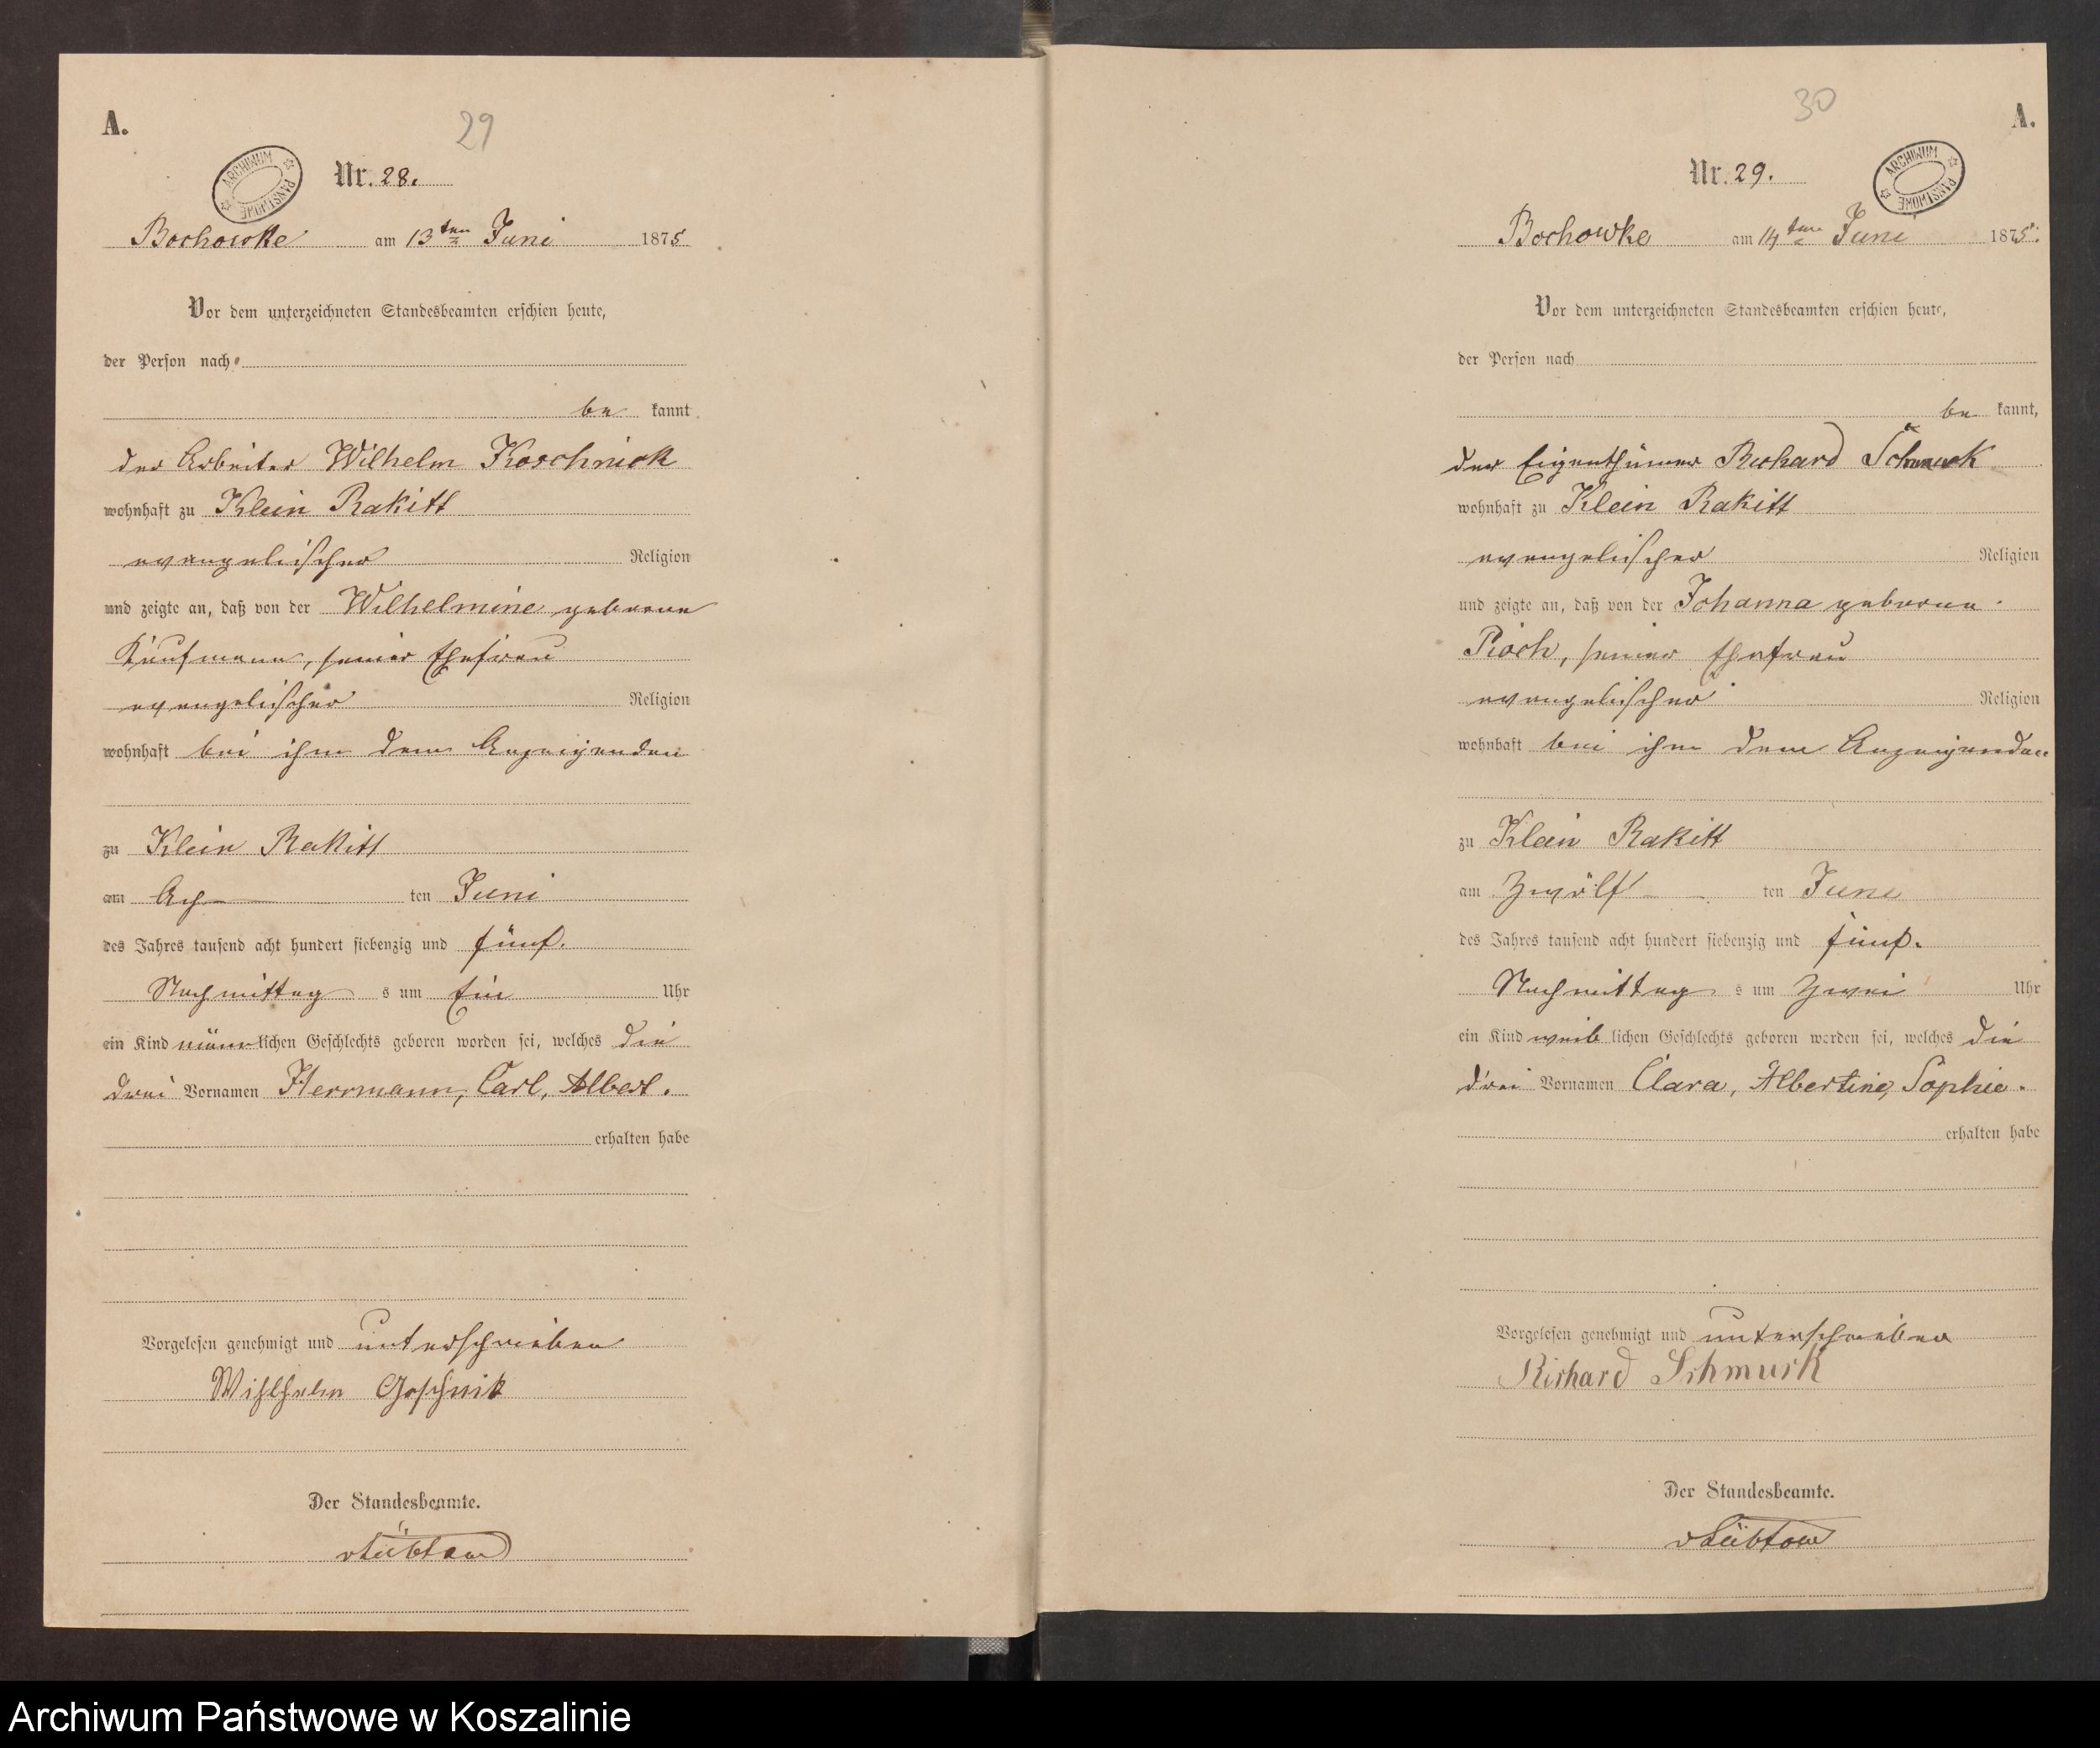 A.
29
ARCHIWUM PAŃSTWOWE
Nr. 28.
Bochowke am 13ten Juni 1875
Vor dem unterzeichneten Standesbeamten erschien heute,
der Person nach
be kannt
der Arbeiter Wilhelm Koschnick
wohnhaft zu Klein Rakitt
evangelischer Religion
und zeigte an, daß von der Wilhelmine geborene
Kaufmann, seiner Ehefrau
evangelischer Religion
wohnhaft bei ihm dem Anzeigenden
zu Klein Rakitt
am Ach ten Juni
des Jahres tausend acht hundert siebenzig und fünf.
Nachmittag s um Ein Uhr
ein Kind männlichen Geschlechts geboren worden sei, welches die
drei Vornamen Herrmann, Carl, Albert.
erhalten habe
Vorgelesen genehmigt und unterschrieben
Wihlhelm Goschnik
Der Standesbeamte.
vLübtow
30
A.
ARCHIWUM PAŃSTWOWE
Nr. 29.
Bochowke am 14ten Juni 1875.
Vor dem unterzeichneten Standesbeamten erschien heute,
der Person nach
be kannt,
der Eigenthümer Richard Schmuck
wohnhaft zu Klein Rakitt
evangelischer Religion
und zeigte an, daß von der Johanna geborene
Pioch, seiner Ehefrau
evangelischer Religion
wohnhaft bei ihm dem Anzeigenden
zu Klein Rakitt
am Zwölf ten Juni
des Jahres tausend acht hundert siebenzig und fünf.
Nachmittag s um Zwei Uhr
ein Kind weib lichen Geschlechts geboren worden sei, welches die
drei Vornamen Clara, Albertine, Sophie.
erhalten habe
Vorgelesen genehmigt und unterschrieben
Richard Schmuck
Der Standesbeamte.
vLübtow
Archiwum Państwowe w Koszalinie